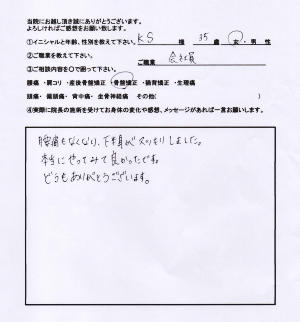 当院にお越し頂き誠にありがとうございます。
よろしければご感想をお願い致します。
①イニシャルと年齢、性別を教えて下さい。 KS 様 35歳 女・男性
②ご職業を教えて下さい。 ご職業 会社員
③ご相談内容を〇で囲って下さい。
腰痛・肩コリ・産後骨盤矯正・骨盤矯正・猫背矯正・生理痛
頭痛・膝痛・背中痛・坐骨神経痛 その他( )
④実際に院長の施術を受けてお身体の変化や感想、メッセージがあれば一言お願いします。
腰痛もなくなり、下半身がスッキリしました。
本当にやってみて良かったです。
どうもありがとうございます。